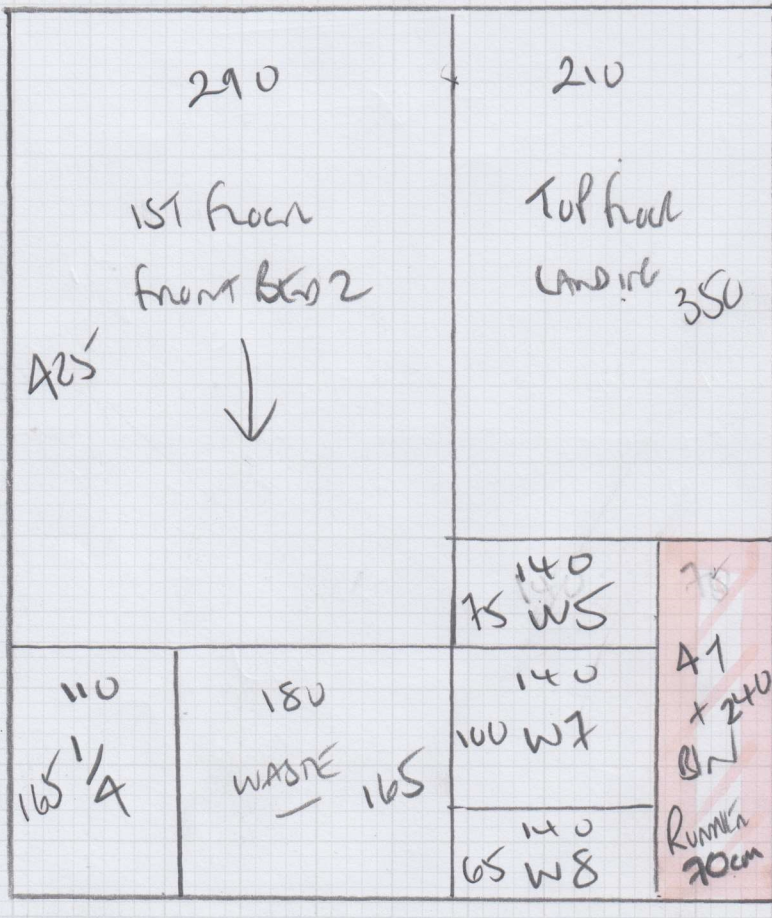 290
1ST Floor
Front BED 2
425
210
Top Floor
LANDING
350
140
75 W5
140
100 W7
140
65 W8
110
165 1/4
180
WASTE 165
70
+ 240
BIN
RUNNER
70cm